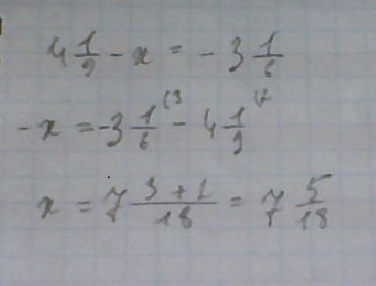 4 1/9 - x = - 3 1/6
- x = - 3 1/6 (3 - 4 1/9 (2
x = 7 (3 + 2)/18 = 7 5/18